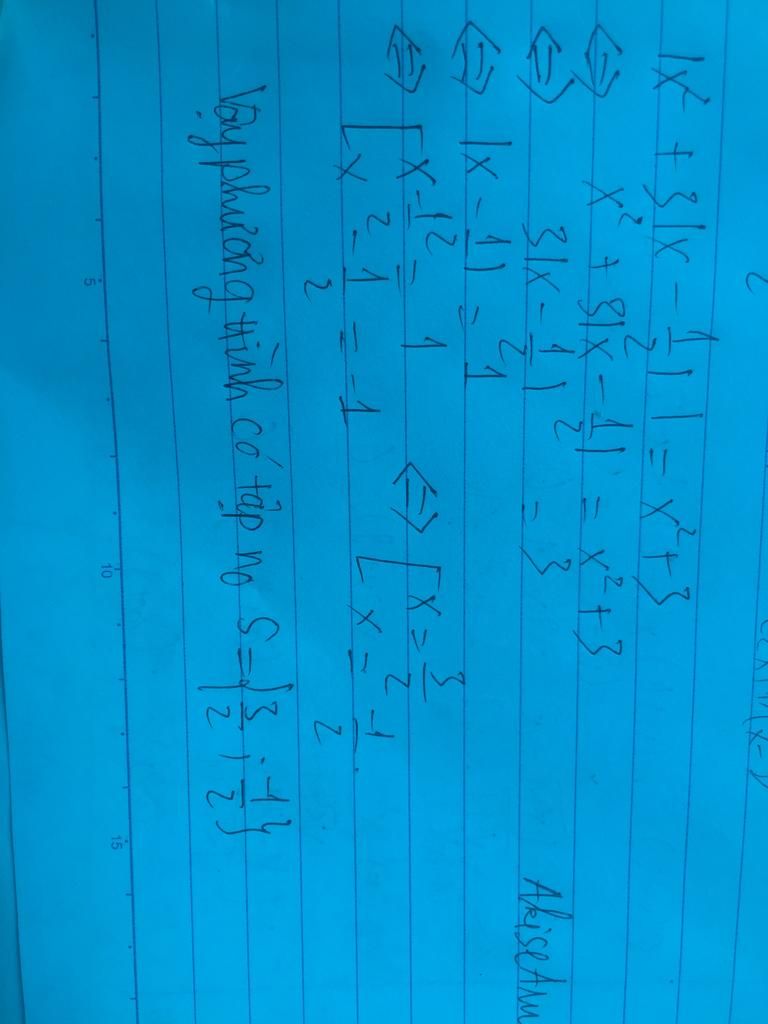 |x² + 3|x - 1/2|| = x² + 3
⇔ x² + 3|x - 1/2| = x² + 3
⇔ 3|x - 1/2| = 3
⇔ |x - 1/2| = 1
⇔ [ x - 1/2 = 1 ⇔ [ x = 3/2
x - 1/2 = -1 x = -1/2.
Vậy phương trình có tập no S = {3/2; -1/2}
5 10 15